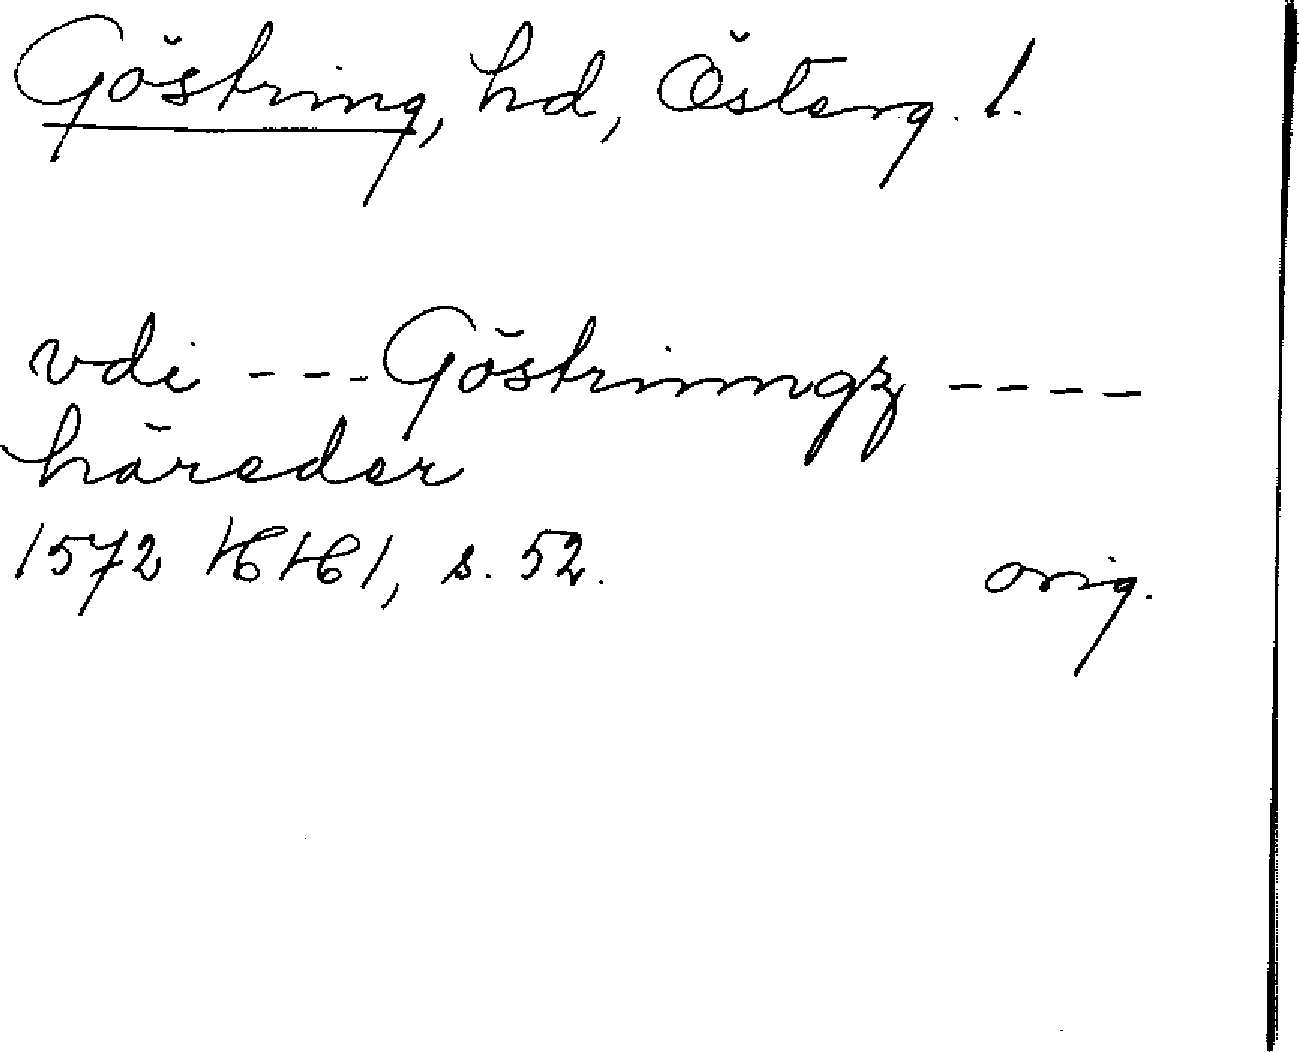 Göstring, hd, Österg. l.
vdi --- Göstrinngz ----
häreder
1572 HH 1, s. 52. orig.